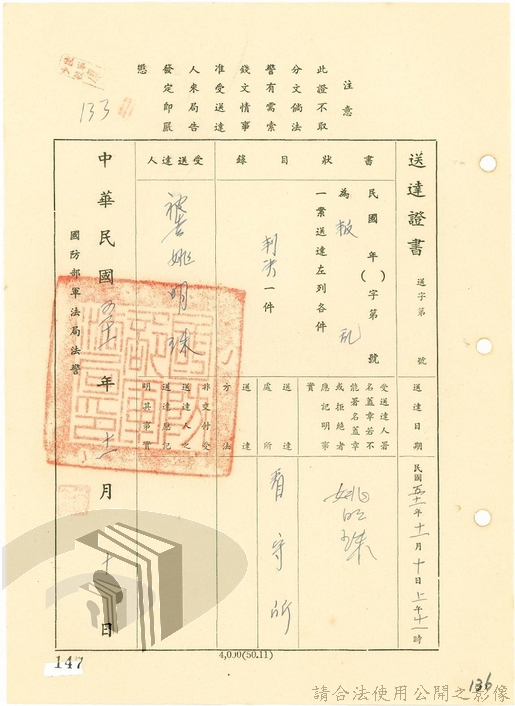 注意
此證不取
分文倘法
警有需索
錢文情事
准受送達
人來局告
發定即嚴
懲
133
送達證書
送字第 號
送達日期
民國五十一年十一月十日上午十一時
書狀目錄
民國 年( )字第 號
為叛亂
一案送達左列各件
判決一件
受送達人
被告姚明珠
受送達人署
名蓋章若不
能署名蓋章
或拒絕者
應記明事
實
姚明珠
送達處所
看守所
送達方法
非交付受
送達人之
送達應記
明其事實
中華民國五十一年十一月十日
國防部軍法局法警
147
4,000(50.11)
136
請合法使用公開之影像